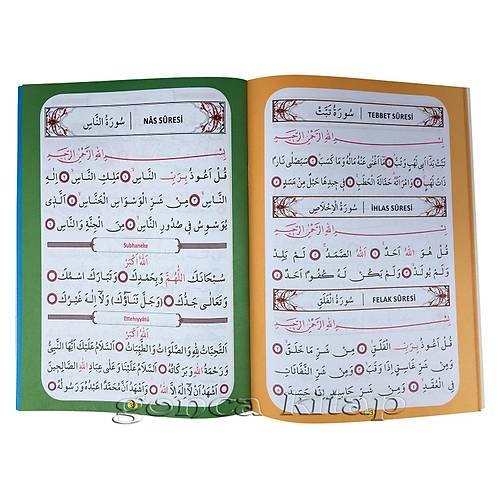 سُورَةُ تَبَّتْ | TEBBET SÛRESİ
بِسْمِ اللّٰهِ الرَّحْمٰنِ الرَّحِيمِ
تَبَّتْ يَدَا اَبِى لَهَبٍ وَتَبَّ مَا اَغْنٰى عَنْهُ مَالُهُ وَمَا كَسَبَ سَيَصْلٰى نَارًا
ذَاتَ لَهَبٍ وَامْرَاَتُهُ حَمَّالَةَ الْحَطَبِ فِى جِيدِهَا حَبْلٌ مِنْ مَسَدٍ
سُورَةُ الْاِخْلَاصِ | İHLAS SÛRESİ
بِسْمِ اللّٰهِ الرَّحْمٰنِ الرَّحِيمِ
قُلْ هُوَ اللّٰهُ اَحَدٌ اَللّٰهُ الصَّمَدُ لَمْ يَلِدْ
وَلَمْ يُولَدْ وَلَمْ يَكُنْ لَهُ كُفُوًا اَحَدٌ
سُورَةُ الْفَلَقِ | FELAK SÛRESİ
بِسْمِ اللّٰهِ الرَّحْمٰنِ الرَّحِيمِ
قُلْ اَعُوذُ بِرَبِّ الْفَلَقِ مِنْ شَرِّ مَا خَلَقَ
وَمِنْ شَرِّ غَاسِقٍ اِذَا وَقَبَ وَمِنْ شَرِّ النَّفَّاثَاتِ
فِى الْعُقَدِ وَمِنْ شَرِّ حَاسِدٍ اِذَا حَسَدَ
سُورَةُ النَّاسِ | NÂS SÛRESİ
بِسْمِ اللّٰهِ الرَّحْمٰنِ الرَّحِيمِ
قُلْ اَعُوذُ بِرَبِّ النَّاسِ مَلِكِ النَّاسِ اِلٰهِ
النَّاسِ مِنْ شَرِّ الْوَسْوَاسِ الْخَنَّاسِ اَلَّذِى
يُوَسْوِسُ فِى صُدُورِ النَّاسِ مِنَ الْجِنَّةِ وَالنَّاسِ
Subhaneke
اَللّٰهُ اَكْبَرُ
سُبْحَانَكَ اللّٰهُمَّ وَبِحَمْدِكَ وَتَبَارَكَ اسْمُكَ
وَتَعَالٰى جَدُّكَ (وَجَلَّ ثَنَاؤُكَ) وَلَا اِلٰهَ غَيْرُكَ
Ettehıyyâtü
اَللّٰهُ اَكْبَرُ
اَلتَّحِيَّاتُ لِلّٰهِ وَالصَّلَوَاتُ وَالطَّيِّبَاتُ اَلسَّلَامُ عَلَيْكَ اَيُّهَا النَّبِىُّ
وَرَحْمَةُ اللّٰهِ وَبَرَكَاتُهُ اَلسَّلَامُ عَلَيْنَا وَعَلٰى عِبَادِ اللّٰهِ الصَّالِحِينَ
اَشْهَدُ اَنْ لَا اِلٰهَ اِلَّا اللّٰهُ وَاَشْهَدُ اَنَّ مُحَمَّدًا عَبْدُهُ وَرَسُولُهُ
gonca kitap